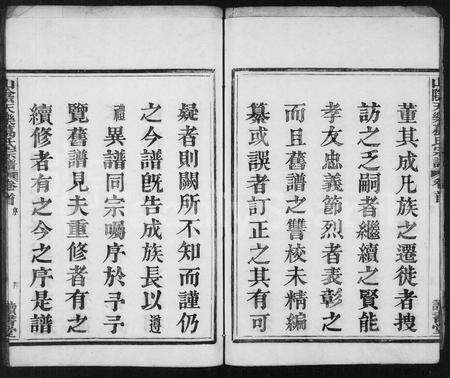 董其成凡族之遷徙者搜
訪之乏嗣者繼續之賢能
孝友忠義節烈者表彰之
而且舊譜之讐校未精編
纂或誤者訂正之其有可
疑者則闕所不知而謹仍
之今譜既告成族長以遵
禮異譜同宗囑序於予予
覽舊譜見夫重修者有之
續修者有之今之序是譜
山陰天樂葛氏宗譜
卷首
序